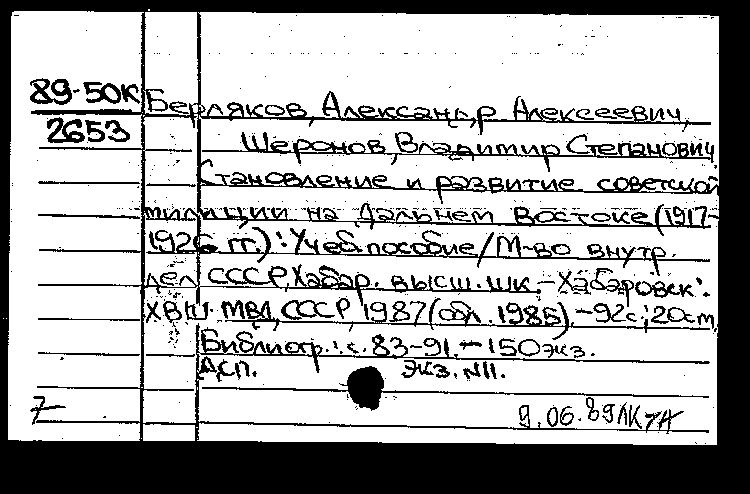 89-50К
2653
Берляков, Александр Алексеевич,
Шеронов, Владимир Степанович
Становление и развитие советской
милиции на Дальнем Востоке (1917-
1926 гг.): Учеб. пособие / М-во внутр.
дел СССР, Хабар. высш. шк. - Хабаровск:
ХВШ МВД СССР, 1987 (обл. 1986). - 92 с.; 20 см.
Библиогр.: с. 83-91. - 150 экз.
ДСП. экз. N 11.
7 9.06.89